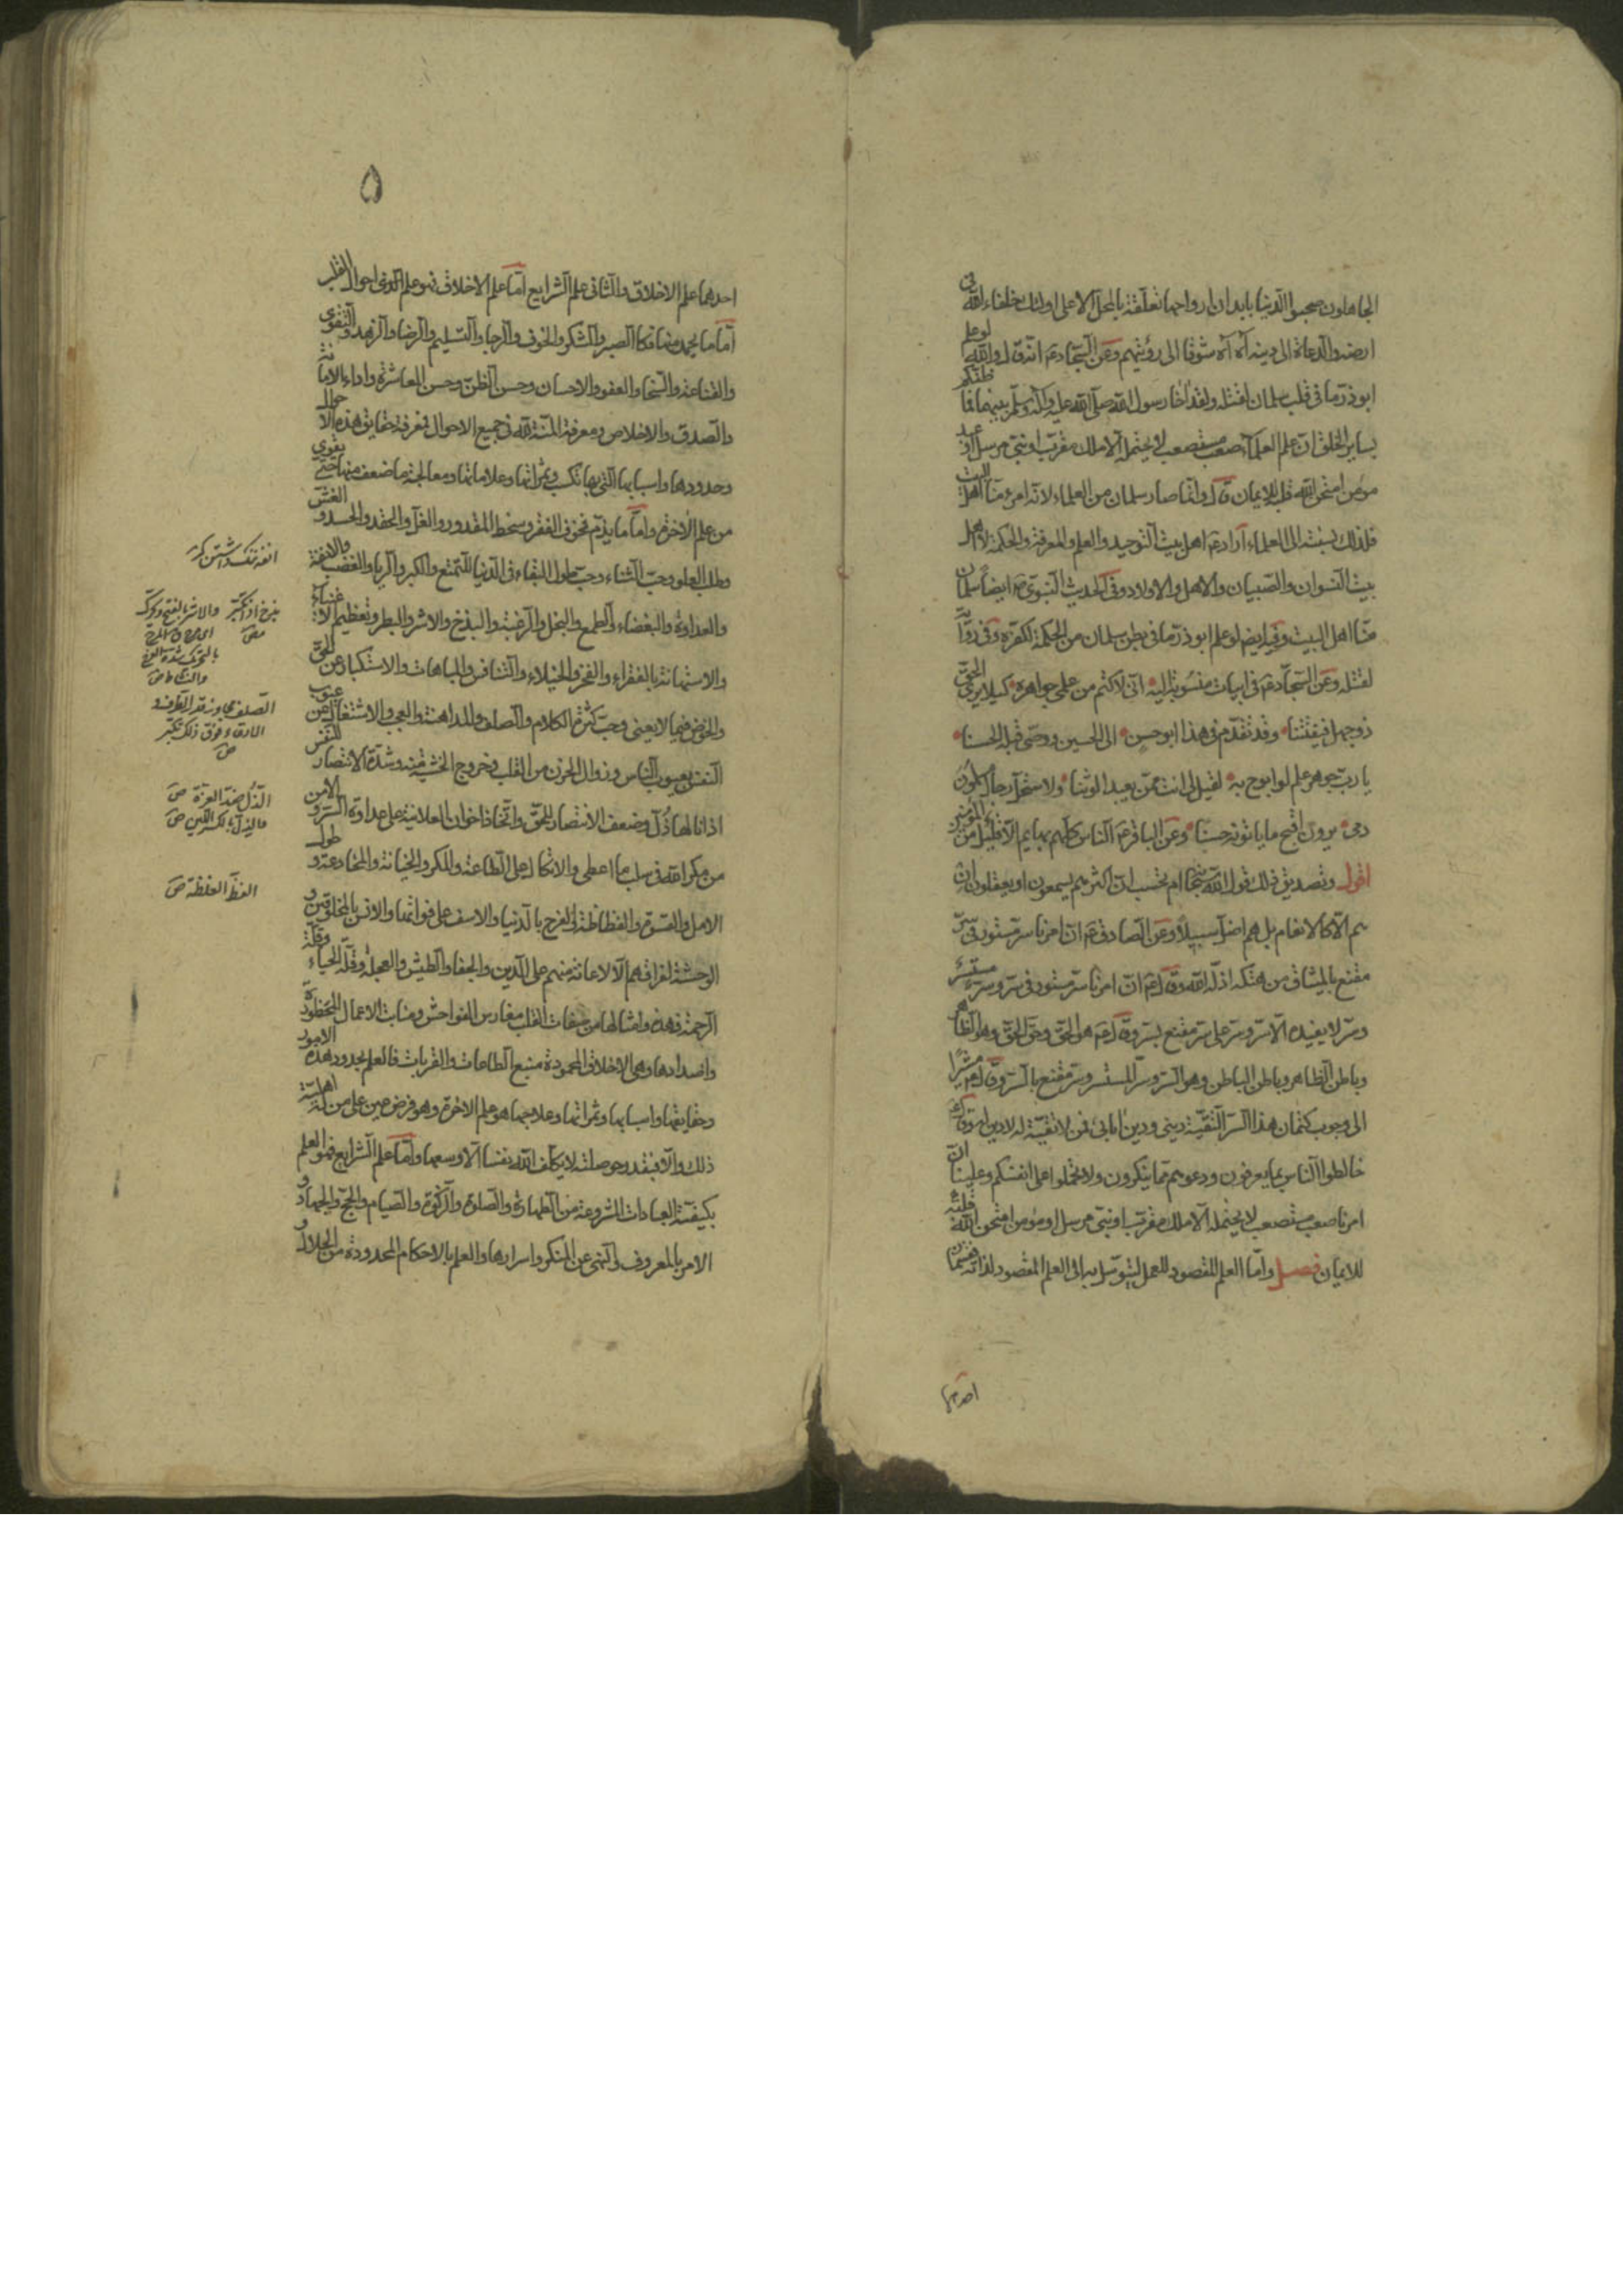 الجاهلون صحبوا الدنيا بابدان ارواحها متعلقة بالمحل الاعلى اولئك خلفاء الله فى
ارضه والدعاة الى دينه آه آه شوقا الى رؤيتهم وعن السجاد ع انه قال والله لو علم
ابوذر ما فى قلب سلمان لقتله ولقد اخا رسول الله صلى الله عليه وآله وسلم بينهما فما ظنكم
بساير الخلق ان علم العلماء صعب مستصعب لا يحتمله الا ملك مقرب او نبى مرسل او عبد
مؤمن امتحن الله قلبه للايمان قال وانما صار سلمان من العلماء لانه امرء منا اهل البيت
فلذلك نسبته الى العلماء اراد ع اهل بيت التوحيد والعلم والمعرفة والحكمة لا اهل
بيت النسوان والصبيان والاهل والاولاد وفى الحديث النبوى ص ايضا سلمان
منا اهل البيت وفيه ايض لو علم ابوذر ما فى بطن سلمان من الحكمة لكفره وفى رواية
لقتله وعن السجاد ع فى ابيات منسوبة اليه انى لاكتم من علمى جواهره كيلا يرى الحق
ذو جهل فيفتتنا وقد تقدم فى هذا ابو حسن الى الحسين ووصى قبله الحسنا
يا رب جوهر علم لو ابوح به لقيل لى انت ممن يعبد الوثنا ولاستحل رجال مسلمون
دمى يرون اقبح ما ياتونه حسنا وعن الباقر ع الناس كلهم بهايم الا قليل من المؤمنين
اقول وتصديق ذلك قول الله سبحانه ام تحسب ان اكثرهم يسمعون او يعقلون ان
هم الا كالانعام بل هم اضل سبيلا وعن الصادق ع ان امرنا سر مستور فى سر
مقنع بالميثاق من هتكه اذله الله وقال ع ان امرنا سر مستور فى سر وسر مستسر
وسر لا يفيده الا سر وسر على سر مقنع بسر وقال ع هو الحق وحق الحق وهو الظاهر
وباطن الظاهر وباطن الباطن وهو السر وسر المستسر وسر مقنع بالسر وقال ع مشيرا
الى وجوب كتمان هذا السر التقية دينى ودين ابائى فمن لا تقية له لا دين له وقال ع
خالطوا الناس بما يعرفون ودعوهم مما ينكرون ولا تحملوا على انفسكم وعلينا ان
امرنا صعب مستصعب لا يحتمله الا ملك مقرب او نبى مرسل او مؤمن امتحن الله قلبه
للايمان فصل واما العلم المقصود للعمل ليتوسل به الى العلم المقصود لذاته فقسمان
احدهما
۵
احدهما علم الاخلاق والثانى علم الشرايع اما علم الاخلاق فهو علم احوال القلب
اما ما يحمد منها فكالصبر والشكر والخوف والرجا والتسليم والرضا والزهد والتقوى
والقناعة والسخا والعفو والاحسان وحسن الظن وحسن المعاشرة واداء الامانة
والصدق والاخلاص ومعرفة المنة لله فى جميع الاحوال فمعرفة حقايق هذه الاحوال
وحدودها واسبابها التى بها تكتسب وثمراتها وعلاماتها ومعالجة ما ضعف منها حتى يقوى
من علم الاخرة واما ما يذم فخوف الفقر وسخط المقدور والغل والحقد والحسد والغش
وطلب العلو وحب الثناء وحب طول البقاء فى الدنيا للتمتع والكبر والريا والغضب والانفة
والعداوة والبغضاء والطمع والبخل والرغبة والبذخ والاشر والبطر وتعظيم الاغنياء
والاستهانة بالفقراء والفخر والخيلاء والتنافس والمباهات والاستكبار عن الحق
والخوض فيما لا يعنى وحب كثرة الكلام والصلف والمداهنة والعجب والاشتغال عن عيوب
النفس بعيوب الناس وزوال الحزن من القلب وخروج الخشية منه وشدة الانتصار للنفس
اذا نالها ذل وضعف الانتصار للحق واتخاذ اخوان العلانية على عداوة السر والامن
من مكر الله فى سلب ما اعطى والاتكال على الطاعة والمكر والخيانة والمخادعة وطول
الامل والقسوة والفظاظة والفرح بالدنيا والاسف على فواتها والانس بالمخلوقين و
الوحشة لفراقهم الا لاعانة منهم على الدين والجفا والطيش والعجلة وقلة الحياء وقلة
الرحمة فهذه وامثالها من صفات القلب مغارس الفواحش ومنابت الاعمال المحظورة
واضدادها وهى الاخلاق المحمودة منبع الطاعات والقربات فالعلم بحدود هذه الامور
وحقايقها واسبابها وثمراتها وعلاجها هو علم الاخرة وهو فرض عين على من له اهلية
ذلك والا فبقدر حوصلته لا يكلف الله نفسا الا وسعها واما علم الشرايع فهو العلم
بكيفية العبادات المشروعة من الطهارة والصلوة والزكوة والصيام والحج والجهاد و
الامر بالمعروف والنهى عن المنكر واسرارها والعلم بالاحكام المحدودة من الحلال و
انفة ننك داشتن
بذخ اذا تكبر
والاشر بالفتح
بالتحريك شدة المرح
والنشاط ص
الصلف مجاوزة قدر الظرف و
الادعاء فوق ذلك تكبر
ص
الذل ضد العزة ص
والذل بالكسر اللين ص
الفظ الغلظة ص